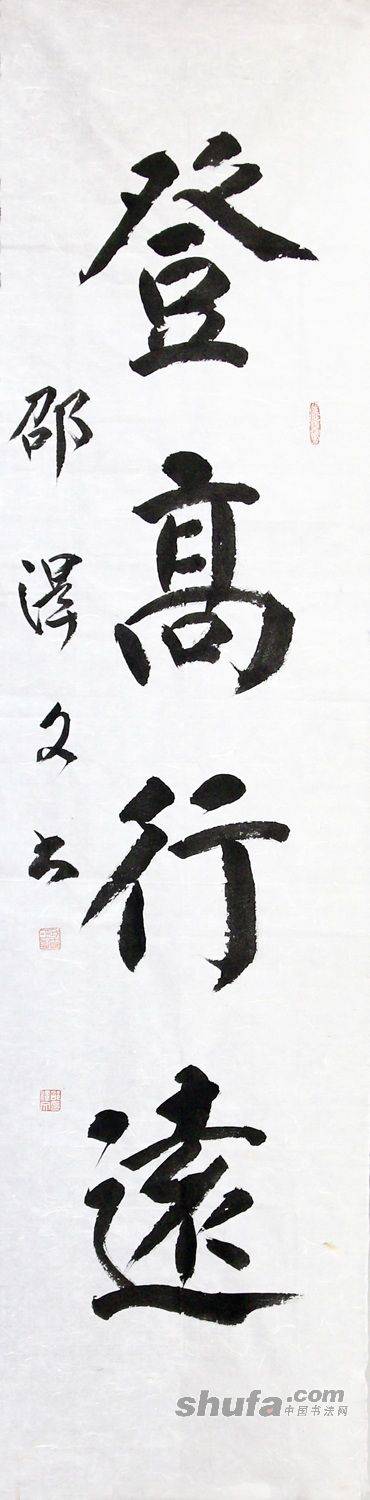 登高行遠
邵澤文书
shufa.com
中国书法网